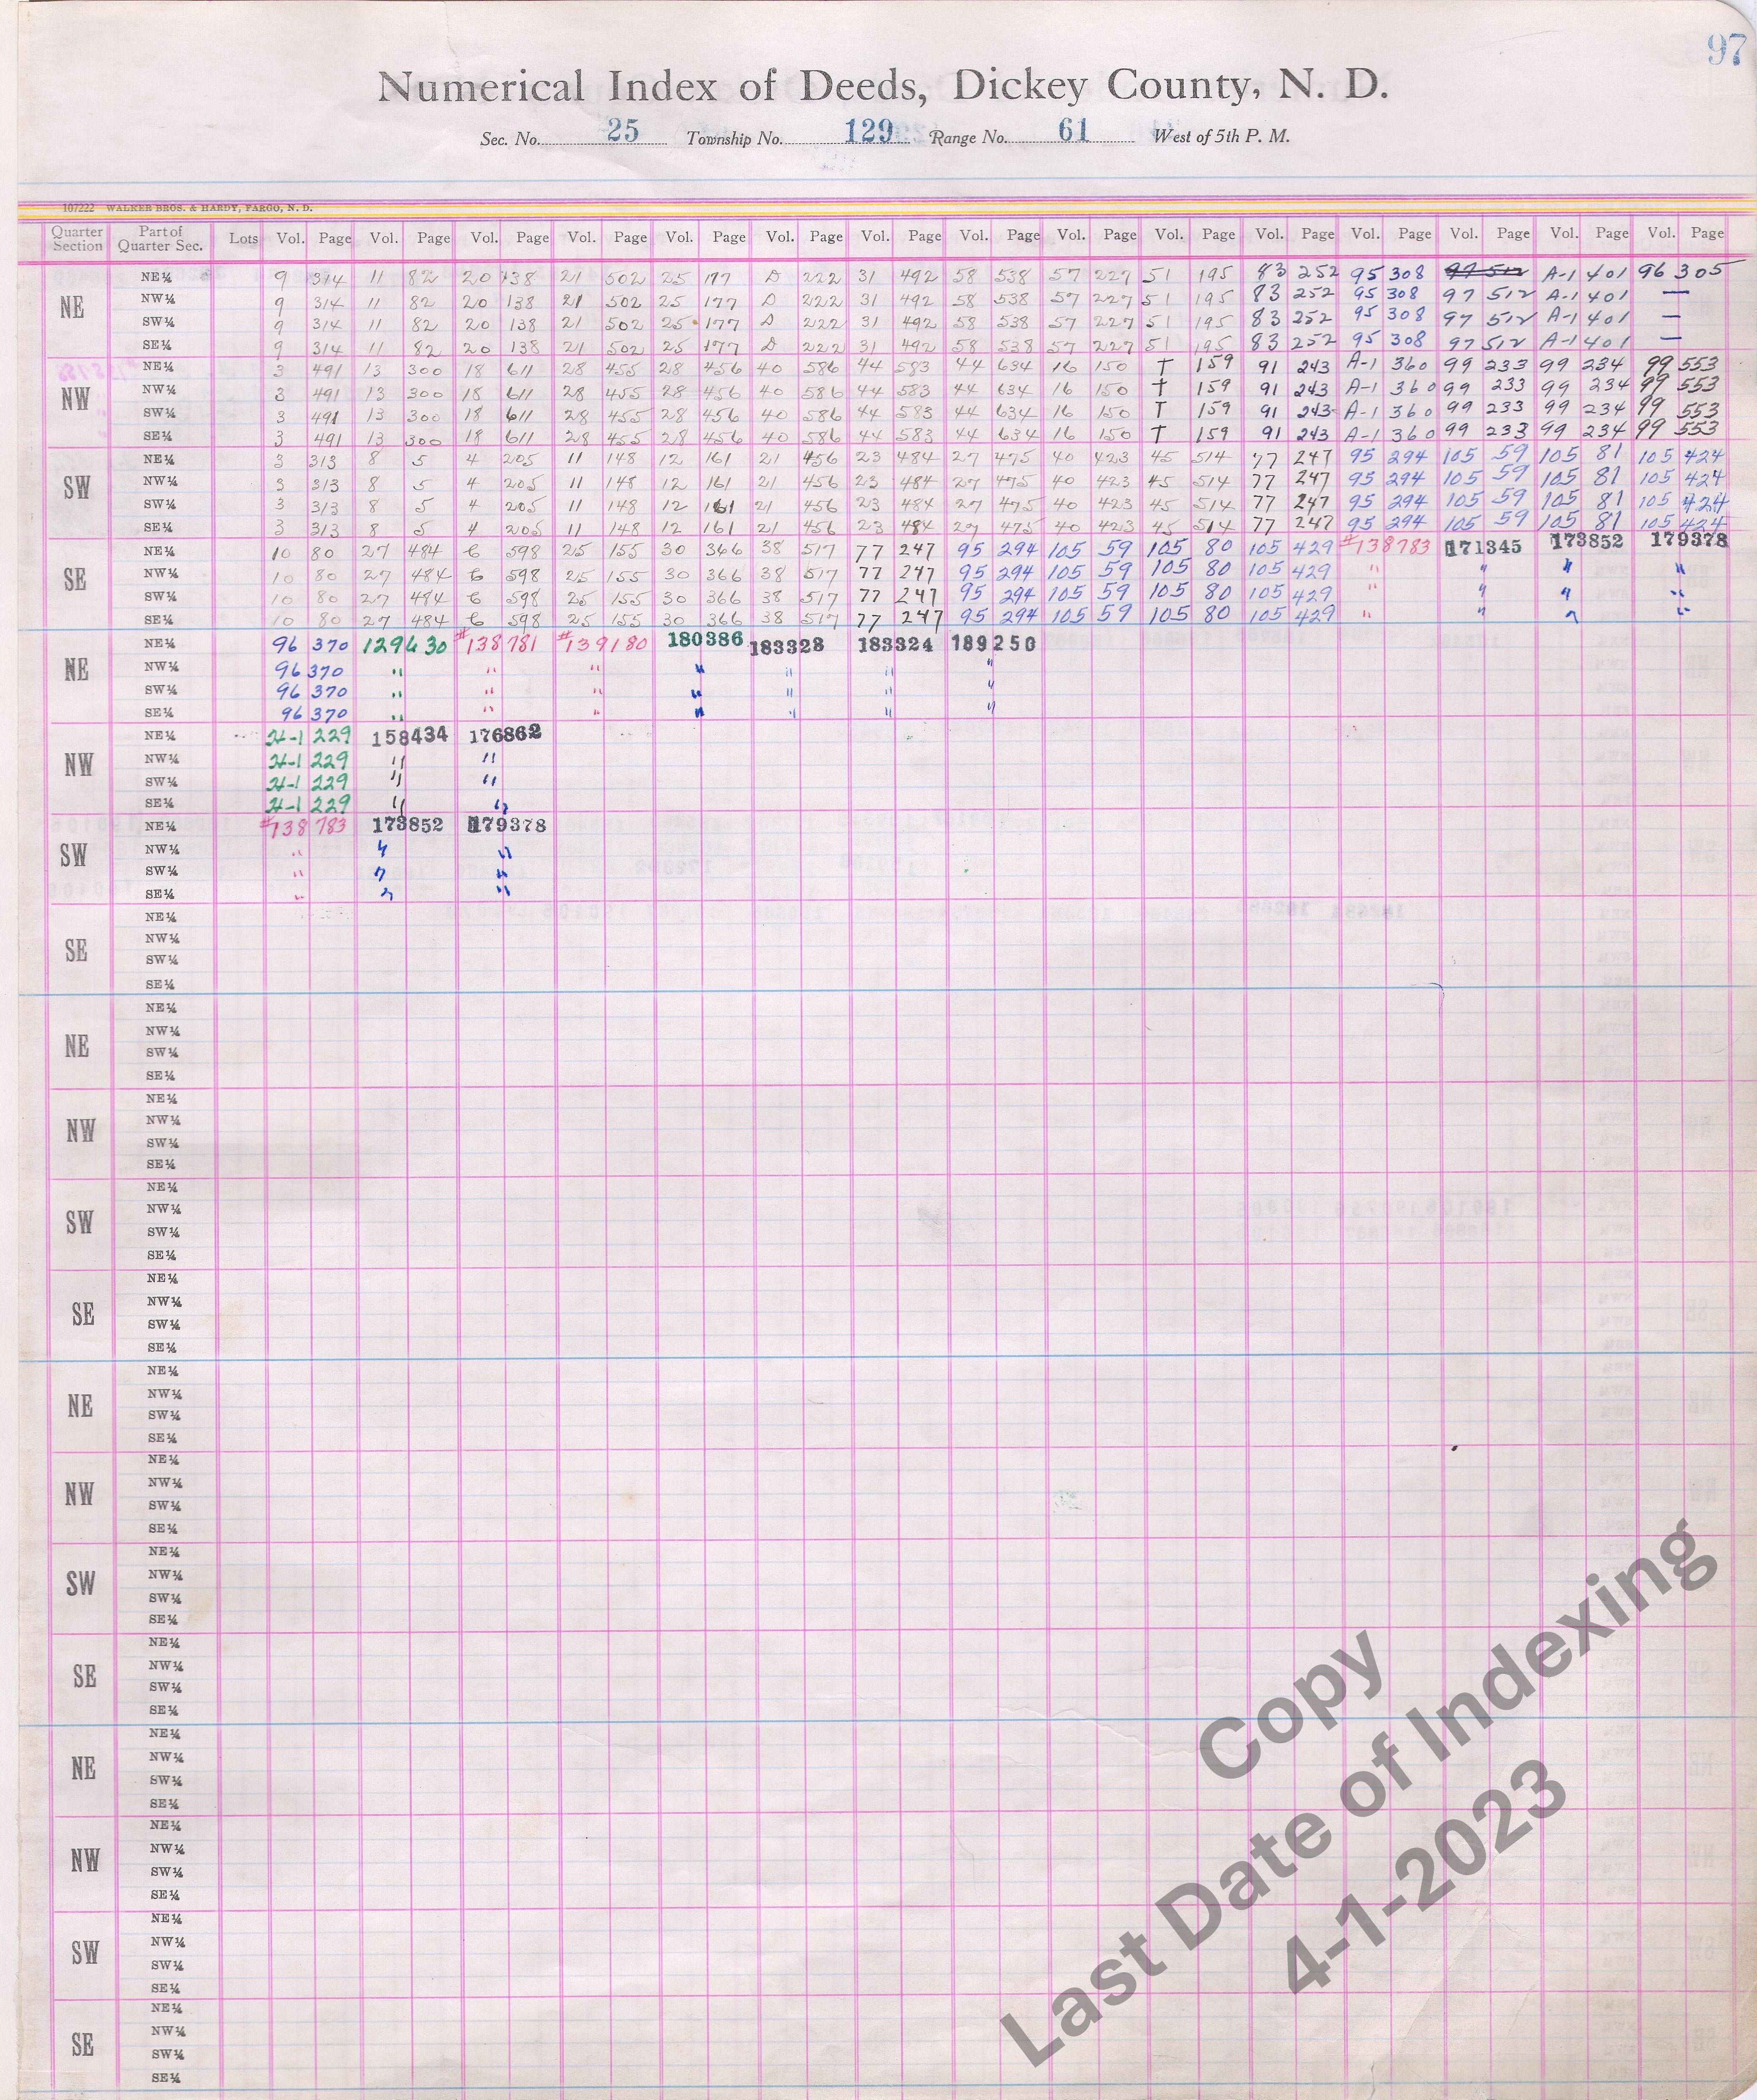 97
Numerical Index of Deeds, Dickey County, N. D.
Sec. No. 25 Township No. 129 Range No. 61 West of 5th P. M.
107222 WALKER BROS. & HARDY, FARGO, N. D.
Quarter Section Part of Quarter Sec. Lots Vol. Page Vol. Page Vol. Page Vol. Page Vol. Page Vol. Page Vol. Page Vol. Page Vol. Page Vol. Page Vol. Page Vol. Page Vol. Page Vol. Page Vol. Page
NE
NE¼ 9 314 11 82 20 138 21 502 25 177 D 222 31 492 58 538 57 227 51 195 83 252 95 308 97 512 A-1 401 96 305
NW¼ 9 314 11 82 20 138 21 502 25 177 D 222 31 492 58 538 57 227 51 195 83 252 95 308 97 512 A-1 401 —
SW¼ 9 314 11 82 20 138 21 502 25 177 D 222 31 492 58 538 57 227 51 195 83 252 95 308 97 512 A-1 401 —
SE¼ 9 314 11 82 20 138 21 502 25 177 D 222 31 492 58 538 57 227 51 195 83 252 95 308 97 512 A-1 401 —
NW
NE¼ 3 491 13 300 18 611 28 455 28 456 40 586 44 583 44 634 16 150 T 159 91 243 A-1 360 99 233 99 234 99 553
NW¼ 3 491 13 300 18 611 28 455 28 456 40 586 44 583 44 634 16 150 T 159 91 243 A-1 360 99 233 99 234 99 553
SW¼ 3 491 13 300 18 611 28 455 28 456 40 586 44 583 44 634 16 150 T 159 91 243 A-1 360 99 233 99 234 99 553
SE¼ 3 491 13 300 18 611 28 455 28 456 40 586 44 583 44 634 16 150 T 159 91 243 A-1 360 99 233 99 234 99 553
SW
NE¼ 3 313 8 5 4 205 11 148 12 161 21 456 23 484 27 475 40 423 45 514 77 247 95 294 105 59 105 81 105 424
NW¼ 3 313 8 5 4 205 11 148 12 161 21 456 23 484 27 475 40 423 45 514 77 247 95 294 105 59 105 81 105 424
SW¼ 3 313 8 5 4 205 11 148 12 161 21 456 23 484 27 475 40 423 45 514 77 247 95 294 105 59 105 81 105 424
SE¼ 3 313 8 5 4 205 11 148 12 161 21 456 23 484 27 475 40 423 45 514 77 247 95 294 105 59 105 81 105 424
SE
NE¼ 10 80 27 484 C 598 25 155 30 366 38 517 77 247 95 294 105 59 105 80 105 429 #138783 171345 173852 179378
NW¼ 10 80 27 484 C 598 25 155 30 366 38 517 77 247 95 294 105 59 105 80 105 429 " " " "
SW¼ 10 80 27 484 C 598 25 155 30 366 38 517 77 247 95 294 105 59 105 80 105 429 " " " "
SE¼ 10 80 27 484 C 598 25 155 30 366 38 517 77 247 95 294 105 59 105 80 105 429 " " " "
NE
NE¼ 96 370 129630 #138781 #139180 180386 183323 183324 189250
NW¼ 96 370 " " " " " " "
SW¼ 96 370 " " " " " " "
SE¼ 96 370 " " " " " " "
NW
NE¼ H-1 229 158434 176862
NW¼ H-1 229 " "
SW¼ H-1 229 " "
SE¼ H-1 229 " "
SW
NE¼ #138783 173852 179378
NW¼ " " "
SW¼ " " "
SE¼ " " "
SE
NE¼
NW¼
SW¼
SE¼
NE
NE¼
NW¼
SW¼
SE¼
NW
NE¼
NW¼
SW¼
SE¼
SW
NE¼
NW¼
SW¼
SE¼
SE
NE¼
NW¼
SW¼
SE¼
NE
NE¼
NW¼
SW¼
SE¼
NW
NE¼
NW¼
SW¼
SE¼
SW
NE¼
NW¼
SW¼
SE¼
SE
NE¼
NW¼
SW¼
SE¼
NE
NE¼
NW¼
SW¼
SE¼
NW
NE¼
NW¼
SW¼
SE¼
SW
NE¼
NW¼
SW¼
SE¼
SE
NE¼
NW¼
SW¼
SE¼
Copy
Last Date of Indexing
4-1-2023